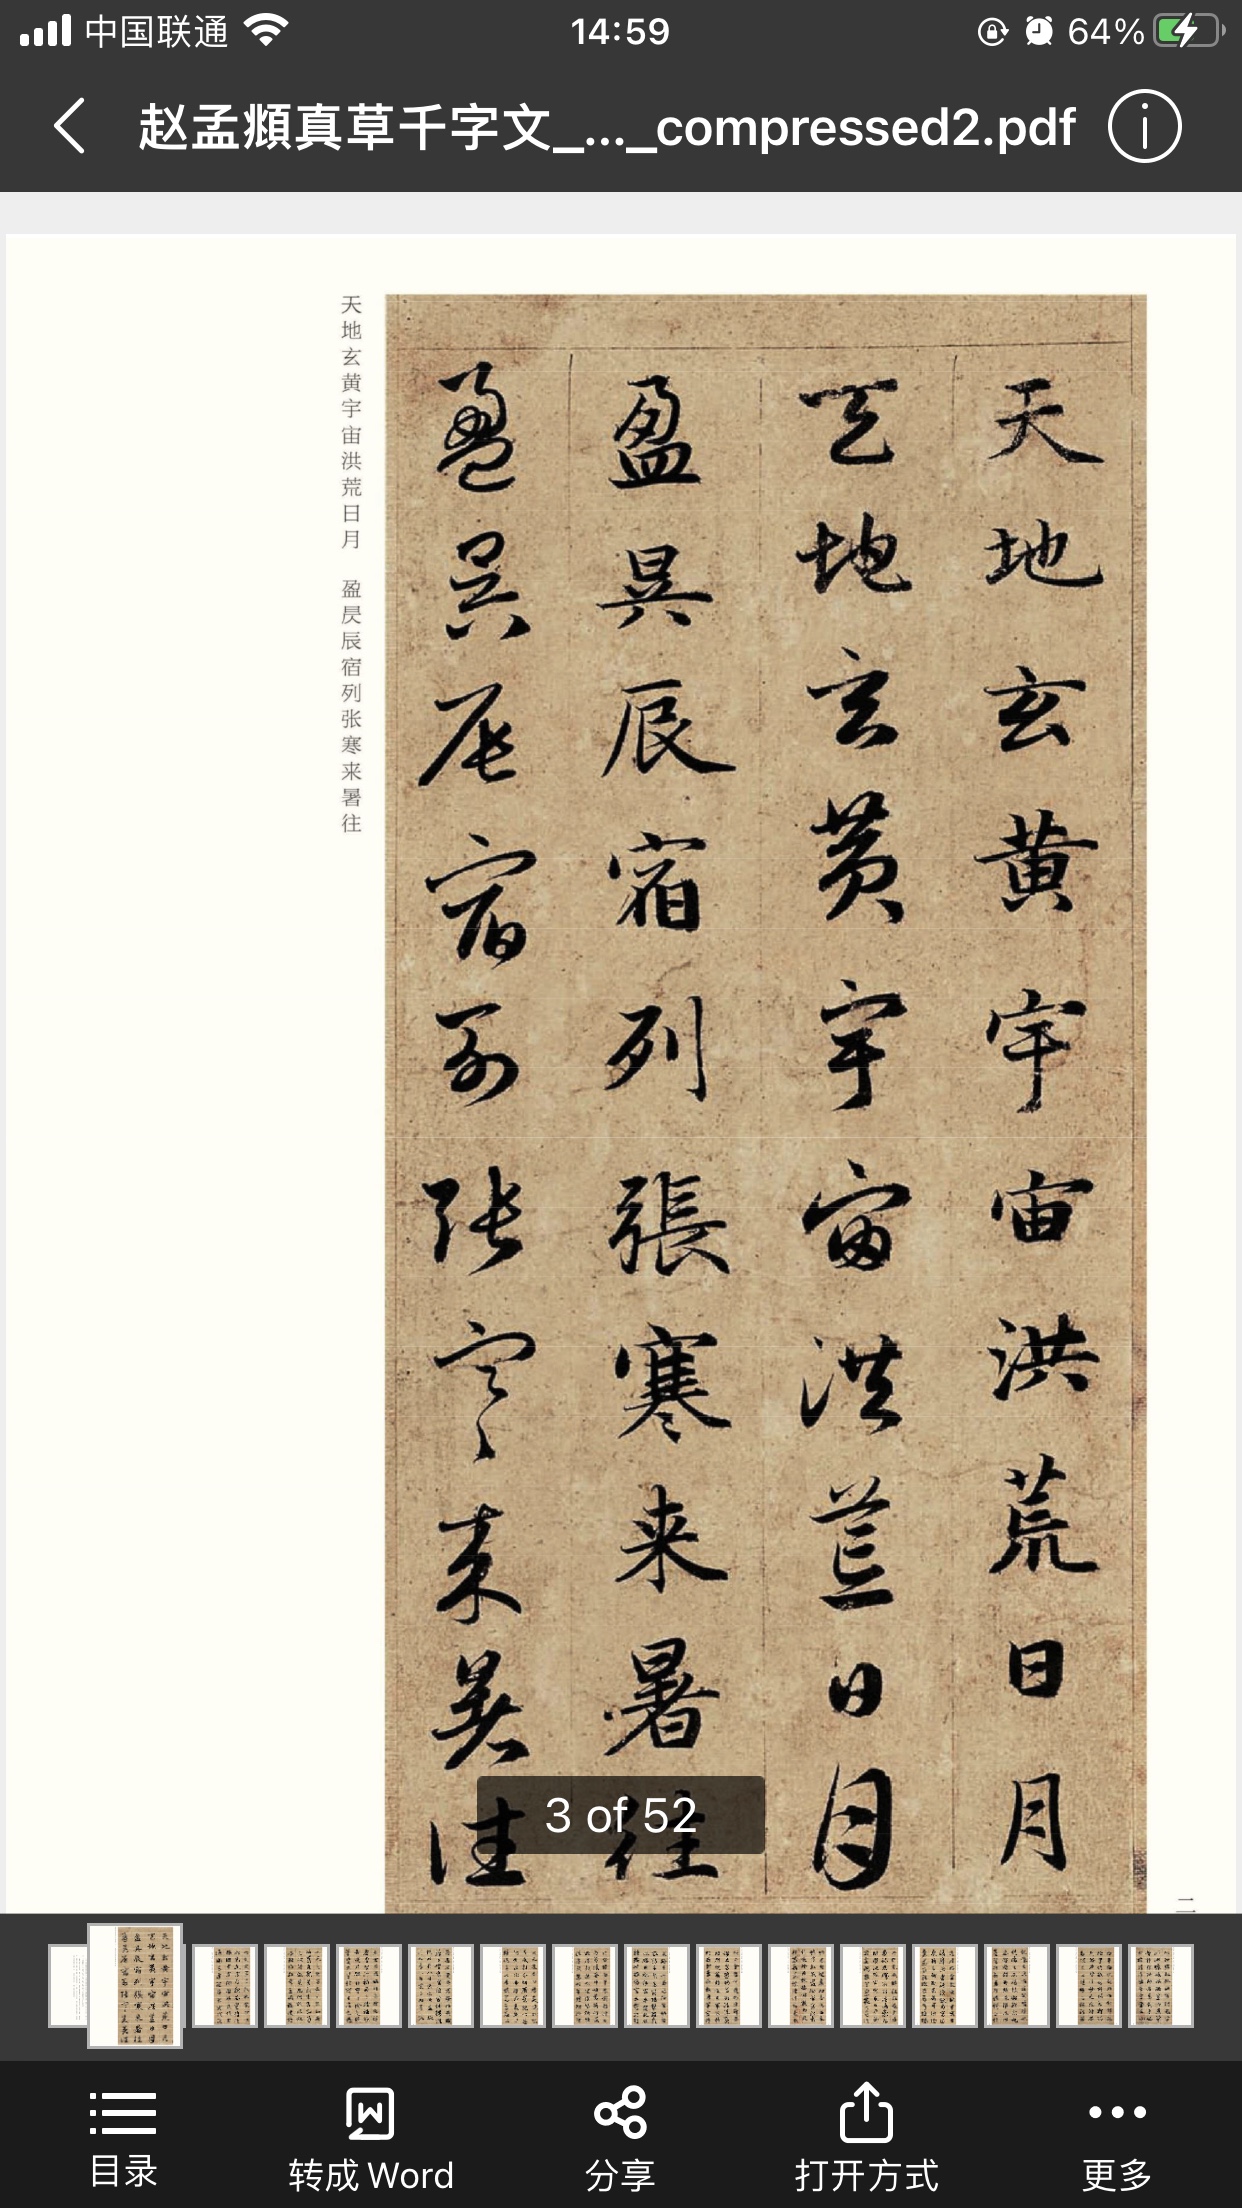 中国联通 14:59 64%
赵孟頫真草千字文_..._compressed2.pdf
天地玄黄宇宙洪荒日月
天地玄黄宇宙洪荒日月
盈昃辰宿列張寒来暑往
盈昃辰宿列张寒来暑往
天地玄黄宇宙洪荒日月 盈昃辰宿列张寒来暑往
二
3 of 52
目录 转成Word 分享 打开方式 更多